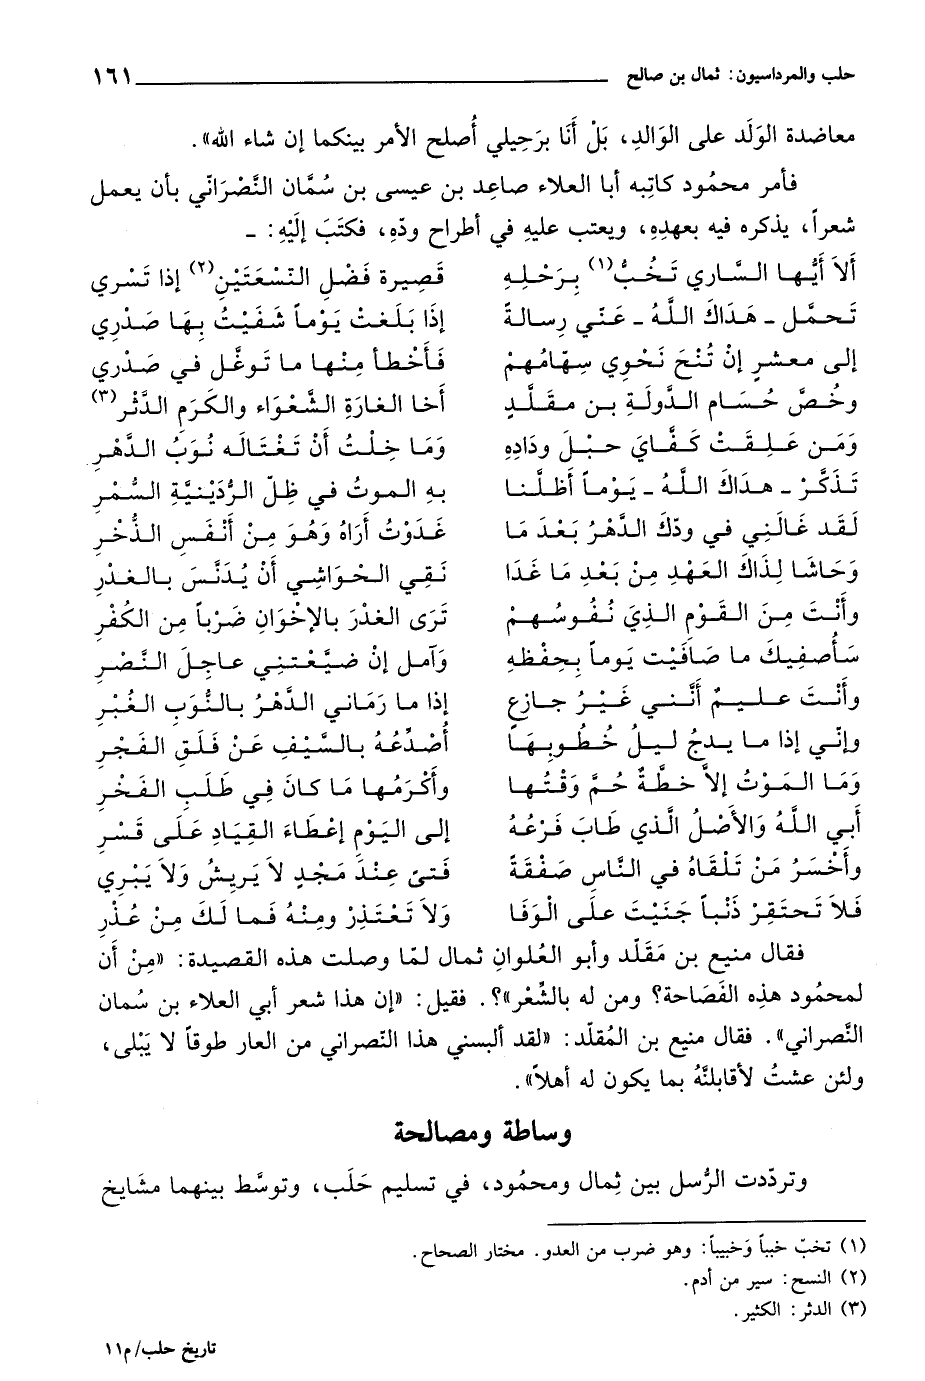 حلب والمرداسيون: ثمال بن صالح ١٦١
معاضدة الوَلَد على الوَالِدِ، بَلْ أَنَا بِرَحِيلي أُصلح الأمر بينكما إن شاء الله».
فأمر محمُود كاتبه أبا العلاء صَاعِد بن عيسى بن سُمَّان النَّصْرَانيّ بأن يعمل
شعراً، يذكره فيه بعهدِهِ، ويعتب عليهِ في أطراح ودّهِ، فكتَبَ إِلَيْهِ: -
أَلاَ أَيُّها السَّاري تَخُبُّ(١) بِرَحْلِهِ قَصِيرة فَضْل النَّسْعَتَيْنِ(٢) إذا تَسْري
تَحمَّل - هَدَاكَ اللَّهُ - عَنِّي رِسالةً إِذَا بَلَغَتْ يَوْماً شَفَيْتُ بِهَا صَدْرِي
إلى معشرٍ إنْ تُنْحَ نَحْوِي سِهَامُهُمْ فَأَخْطأَ مِنْها ما تَوغَّل في صَدْري
وخُصَّ حُسَام الدَّولةِ بن مقلَّدٍ أخا الغارَةِ الشَّعْوَاءِ والكَرَمِ الدَّثْرِ(٣)
وَمَن عَلِقَتْ كَفَّايَ حَبْلَ ودَادِهِ وَمَا خِلْتُ أَنْ تَغْتَالَه نُوَبُ الدَّهْرِ
تَذكَّرْ - هداكَ اللَّهُ - يَوْماً أَظلَّنا بِهِ الموتُ في ظِلِّ الرُّدَيْنيَّةِ السُّمْرِ
لَقَد غَالَنِي في ودِّكَ الدَّهْرُ بَعْدَ مَا غَدَوْتُ أَرَاهُ وَهُوَ مِنْ أَنْفَسِ الذُّخْرِ
وَحَاشَا لِذَاكَ العَهْدِ مِنْ بَعْدِ مَا غَدَا نَقِي الحَوَاشِي أَنْ يُدَنَّسَ بِالغَدْرِ
وأَنْتَ مِنَ القَوْمِ الذي نُفُوسُهِمْ تَرَى الغَدْرَ بالإخْوَانِ ضَرْباً مِن الكُفْرِ
سَأُصفِيكَ ما صَافَيْتَ يَوماً بِحِفْظِهِ وَآمل إنْ ضَيَّعْتني عاجِلَ النَّصْرِ
وأَنْتَ عليمٌ أَنَّني غَيْرُ جازعٍ إذا ما رَمَاني الدَّهْرُ بالنُّوَبِ الغُبْرِ
وإنِّي إذا ما يدجُ ليلُ خُطُوبِهَا أُصَدِّعُهُ بالسَّيْفِ عَنْ فَلَقِ الفَجْرِ
وَمَا المَوْتُ إلاَّ خطَّةٌ حُمَّ وَقْتُها وأَكْرَمُها مَا كَانَ فِي طَلَبِ الفَخْرِ
أَبِي اللَّهُ وَالأَصْلُ الَّذي طَابَ فَرْعُهُ إلى اليَوْمِ إعْطَاءَ القِيَادِ عَلَى قَسْرِ
وأَخْسَرُ مَنْ تَلْقَاهُ في النَّاسِ صَفْقَةً فَتىً عِنْدَ مَجْدٍ لاَ يَرِيشُ وَلاَ يَبْرِي
فَلاَ تَحتَقِرْ ذَنْباً جَنَيْتَ علَى الوَفَا وَلاَ تَعْتَذِرْ ومِنْهُ فَمَا لَكَ مِنْ عُذْرِ
فقال منيع بن مَقَلّد وأبو العُلوانِ ثمال لمّا وصلت هذه القصيدة: «مِنْ أن
لمحمُود هذِه الفَصَاحة؟ ومن له بالشِّعْر»؟. فقيل: «إن هذا شعر أبي العلاء بن سُمان
النَّصراني». فقال منيع بن المُقلّد: «لقد ألبسني هذا النَّصراني من العار طوقاً لا يَبْلى،
ولئن عشتُ لأقابلنَّهُ بما يكون له أهلاً».
وساطة ومصالحة
وتردّدت الرُّسل بين ثِمال ومحمُود، في تسليم حَلَب، وتوسَّط بينهما مشايخ
(١) تخبّ خبباً وَخبيباً: وهو ضرب من العدو. مختار الصحاح.
(٢) النسع: سير من أدم.
(٣) الدثر: الكثير.
تاريخ حلب/م١١